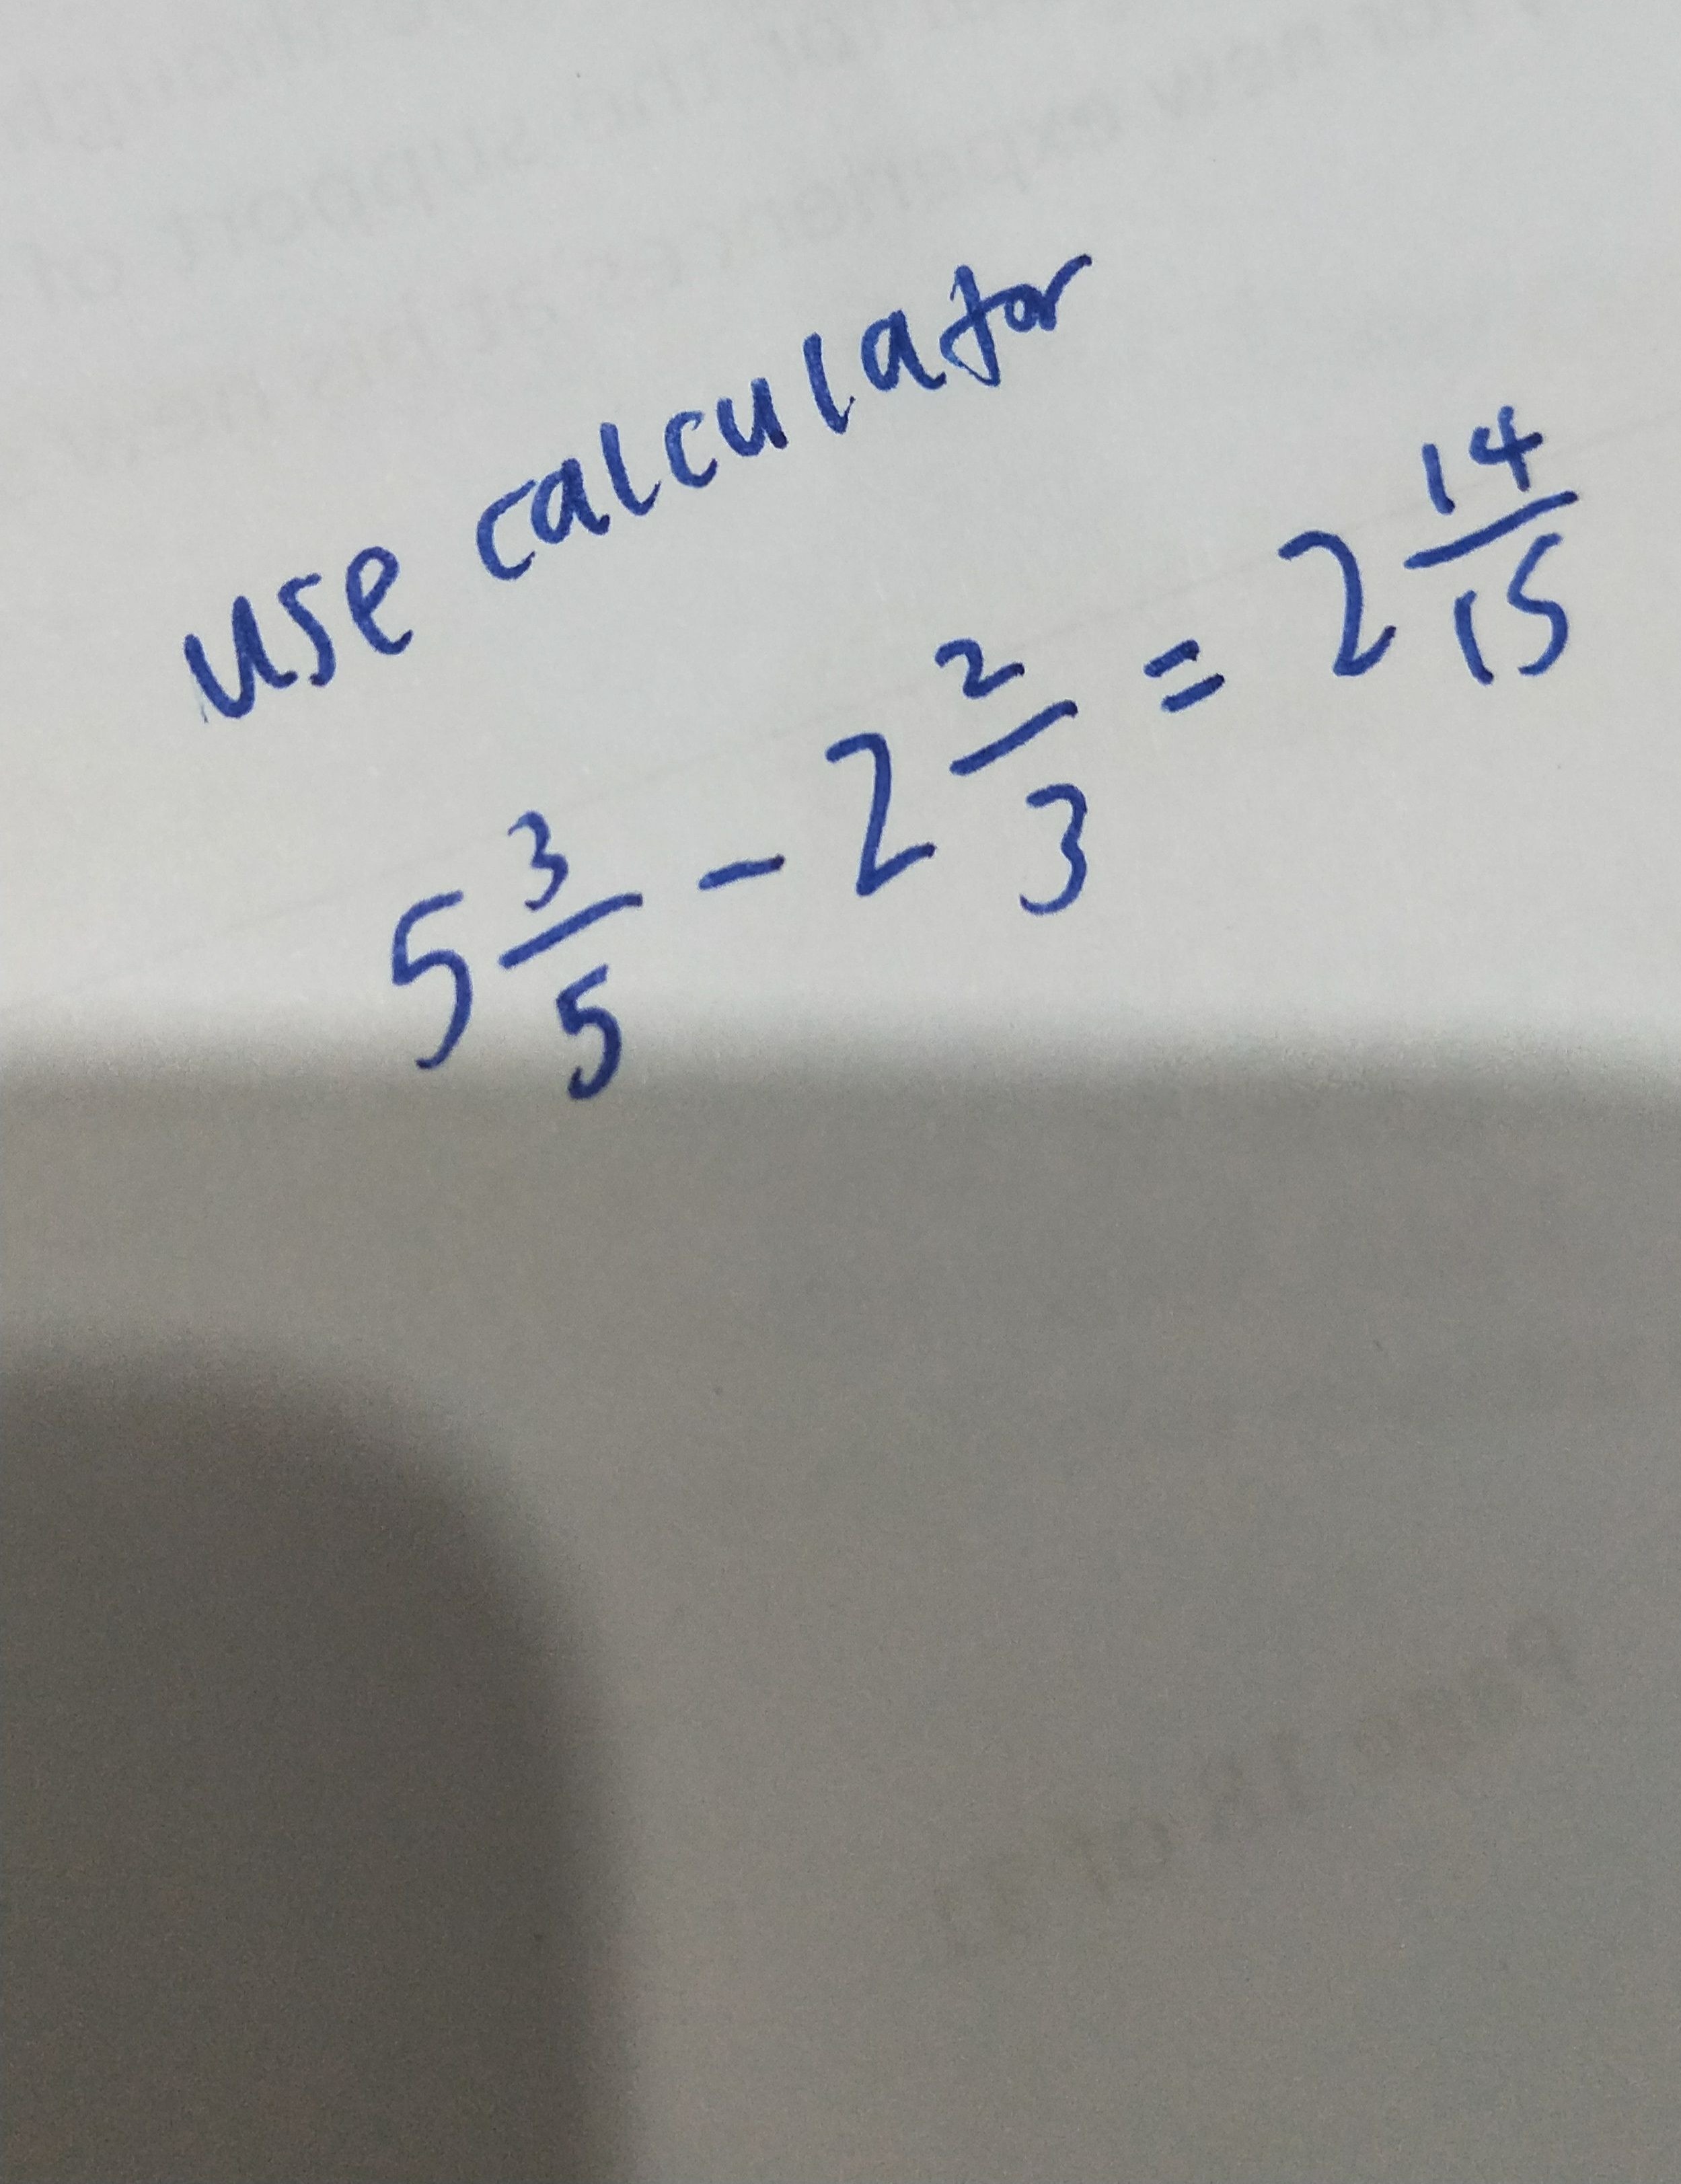 use calculator
5 3/5 - 2 2/3 = 2 14/15